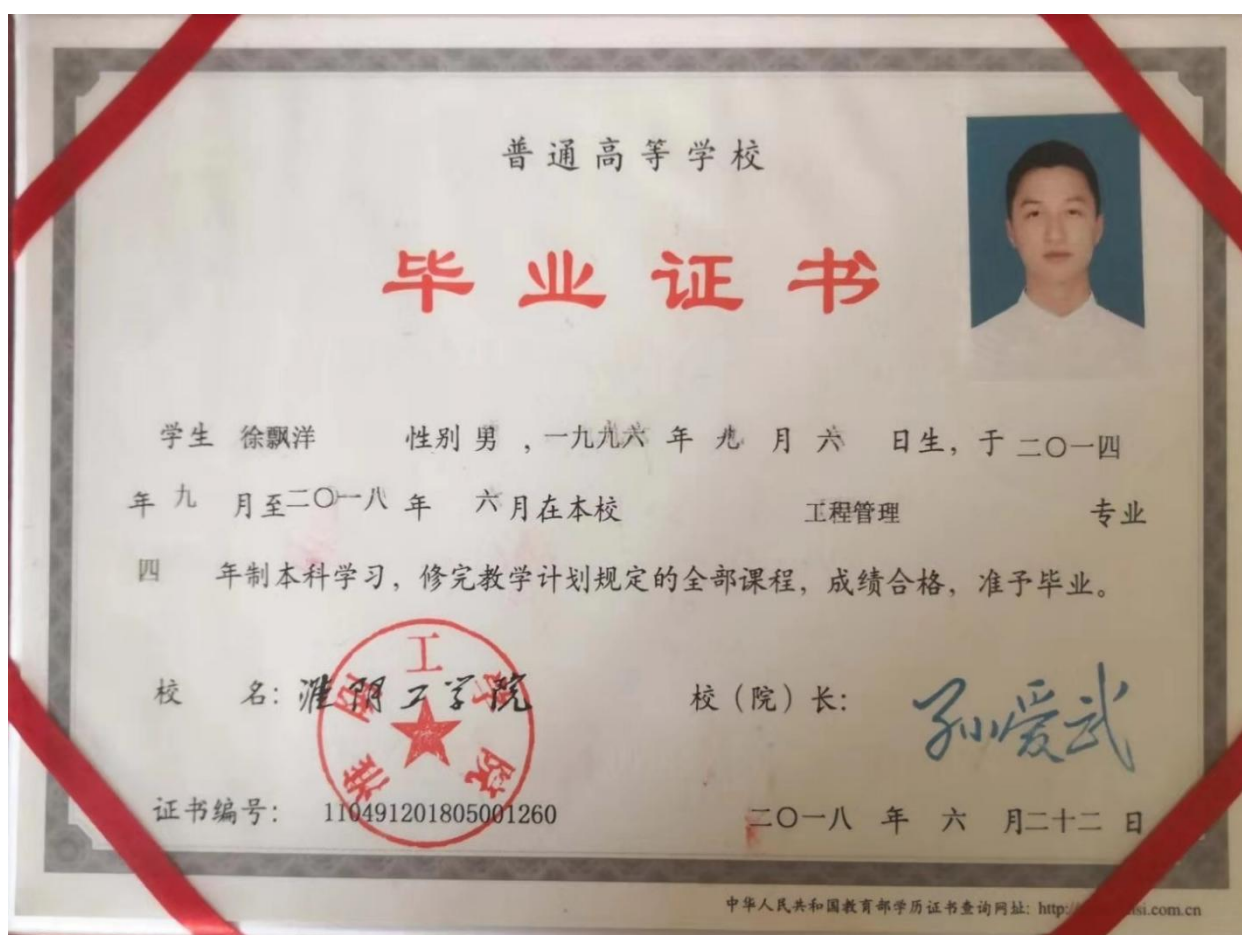 普通高等学校
毕业证书
学生 徐飘洋 性别 男 ，一九九六 年 九 月 六 日生，于 二〇一四
年 九 月至 二〇一八 年 六 月在本校 工程管理 专业
四 年制本科学习，修完教学计划规定的全部课程，成绩合格，准予毕业。
校 名：淮阴工学院 校（院）长：孙爱武
淮阴工学院
证书编号： 110491201805001260 二〇一八 年 六 月二十二 日
中华人民共和国教育部学历证书查询网址: http:/
si.com.cn